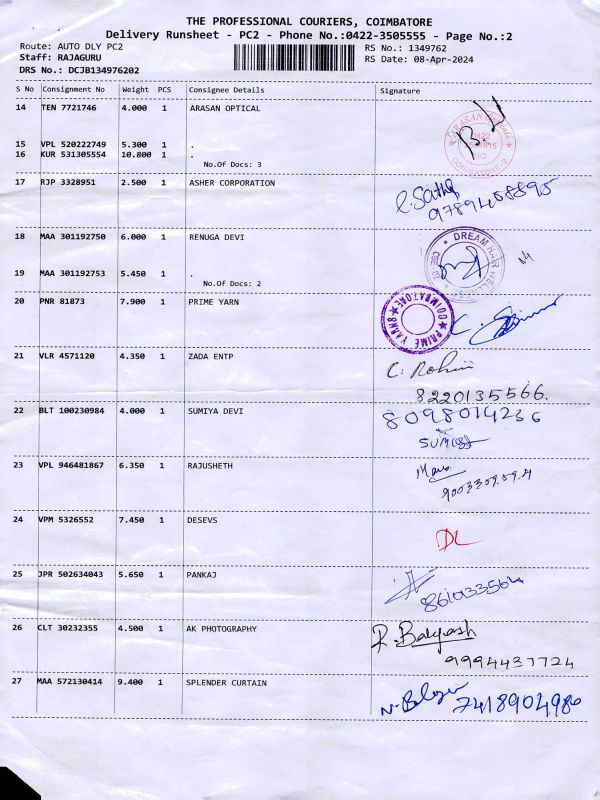 THE PROFESSIONAL COURIERS, COIMBATORE
Delivery Runsheet - PC2 - Phone No.:0422-3505555 - Page No.:2
Route: AUTO DLY PC2 RS No.: 1349762
Staff: RAJAGURU RS Date: 08-Apr-2024
DRS No.: DCJB134976202
S No Consignment No Weight PCS Consignee Details Signature
14 TEN 7721746 4.000 1 ARASAN OPTICAL
15 VPL 520222749 5.300 1 .
16 KUR 531305554 10.800 1 .
No.Of Docs: 3
17 RJP 3328951 2.500 1 ASHER CORPORATION
9789458895
18 MAA 301192750 6.000 1 RENUGA DEVI
DREAM HAIR
19 MAA 301192753 5.450 1 .
No.Of Docs: 2
20 PNR 81873 7.900 1 PRIME YARN
COIMBATORE-8 PRIME YARN
21 VLR 4571120 4.350 1 ZADA ENTP
C. Rohini
8220135566.
22 BLT 100230984 4.000 1 SUMIYA DEVI
8098014236
23 VPL 946481867 6.350 1 RAJUSHETH
24 VPM 5326552 7.450 1 DESEVS
DL
25 JPR 502634043 5.650 1 PANKAJ
26 CLT 30232355 4.500 1 AK PHOTOGRAPHY
9994437724
27 MAA 572130414 9.400 1 SPLENDER CURTAIN
7418904986